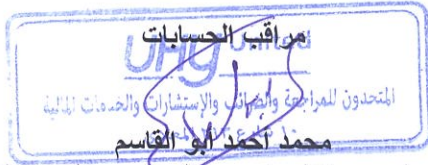 مراقب الحسابات
UHY United
المتحدون للمراجعة والضرائب والإستشارات والخدمات المالية
محمد أحمد أبو القاسم